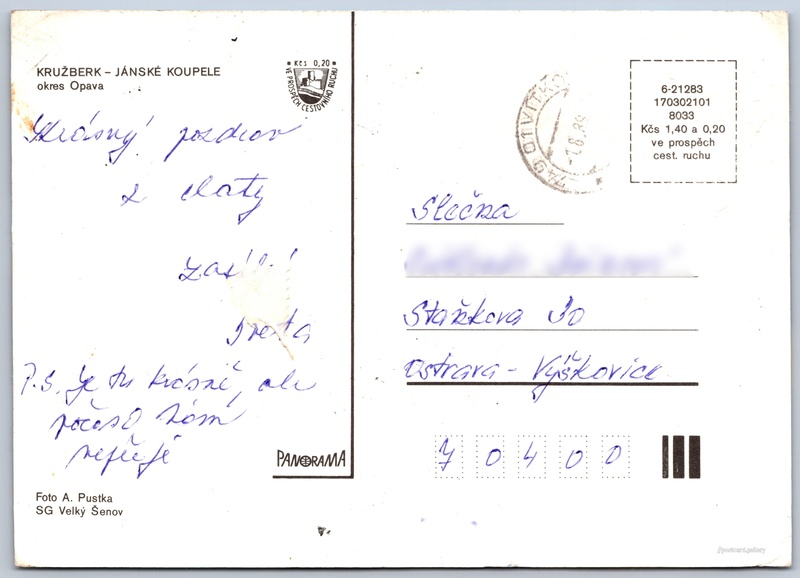 KRUŽBERK – JÁNSKÉ KOUPELE
okres Opava
Kčs 0,20
VE PROSPĚCH CESTOVNÍHO RUCHU
Krásný pozdrav
z chaty
zasílá
Iveta
P.S. je tu krásně, ale
počasí nám
nepřeje
PANORAMA
Foto A. Pustka
SG Velký Šenov
749 01 VÍTKOV
6-21283
170302101
8033
Kčs 1,40 a 0,20
ve prospěch
cest. ruchu
Slečna
Stažkova 30
Ostrava - Výškovice
70400